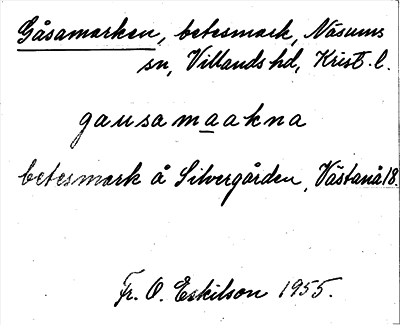 Gåsamarken, betesmark, Näsums
sn, Villands hd, Krist. l.
gausamaakna
betesmark å Silvergården, Västanå 18.
Fr. O. Eskilson 1955.